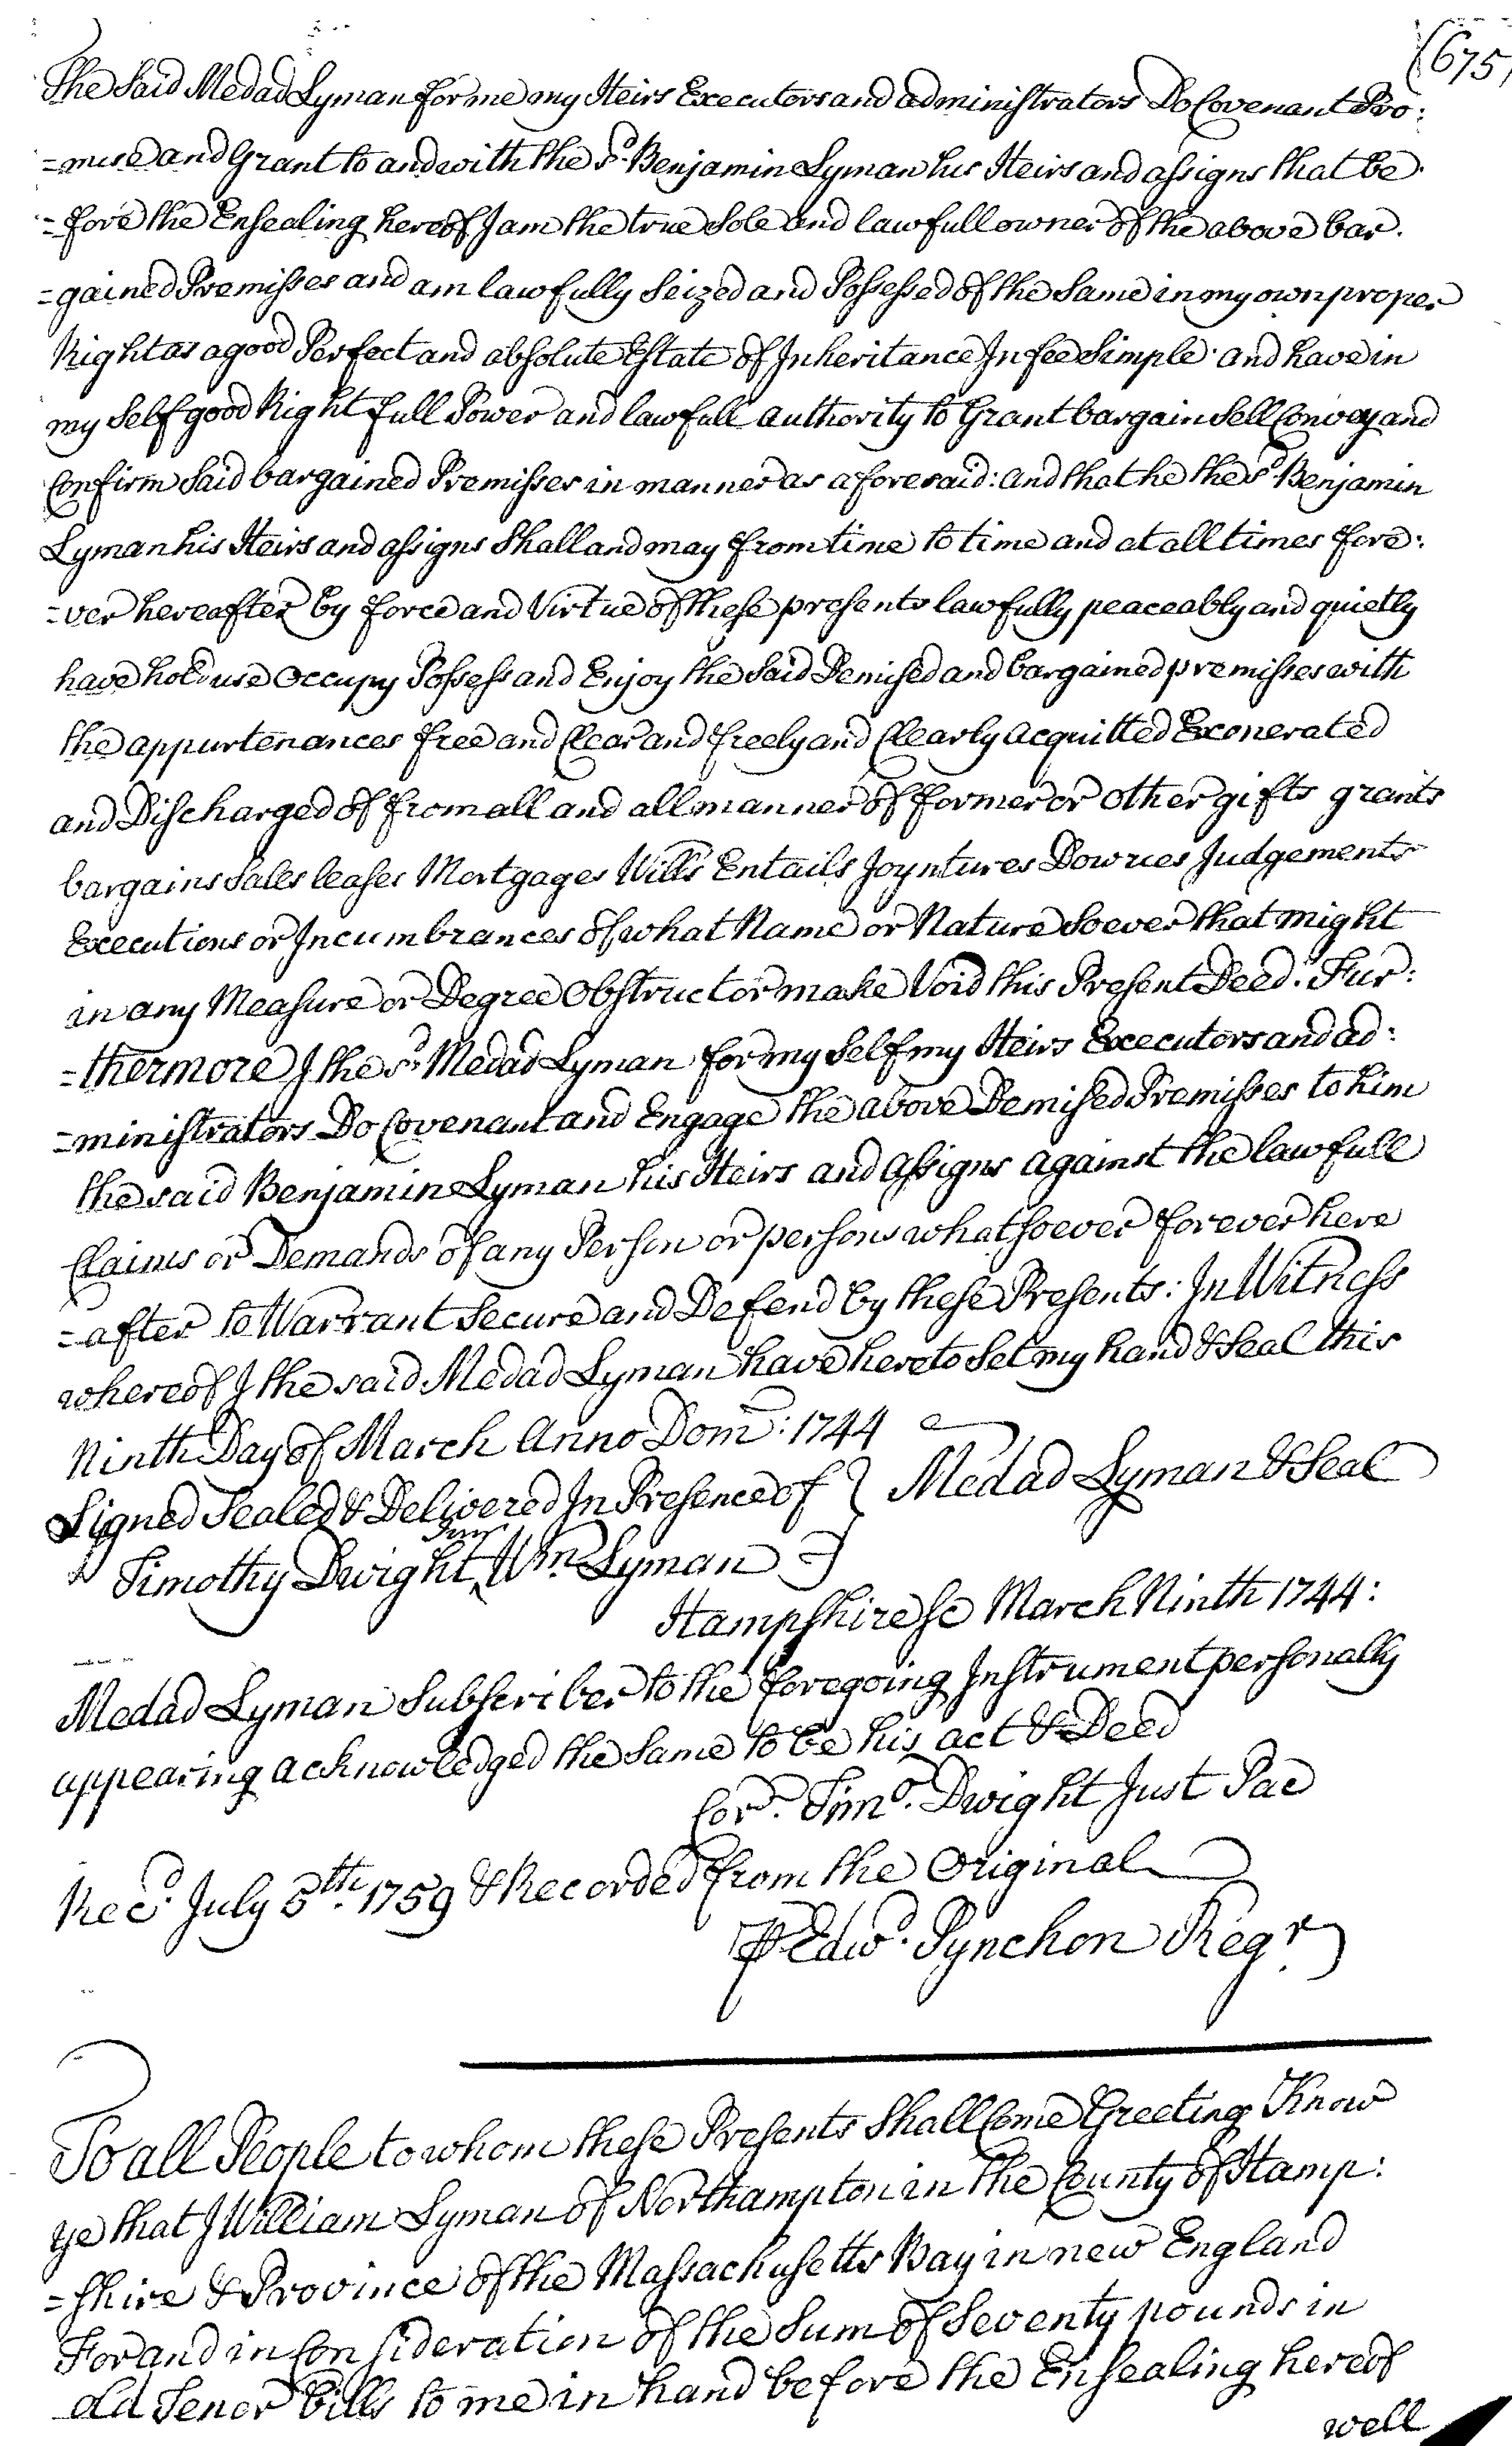 (675)
The Said Medad Lyman for me my Heirs Executors and administrators Do Covenant Pro:
=mise and Grant to and with the sd. Benjamin Lyman his Heirs and assigns that be
=fore the Ensealing hereof I am the true Sole and lawfull owner of the above bar.
=gained Premisses and am lawfully Seized and Possessed of the Same in my own proper
Right as a good Perfect and absolute Estate of Inheritance In fee Simple and have in
my Self good Right full Power and lawfull authority to Grant bargain Sell Convey and
Confirm Said bargained Premisses in manner as aforesaid: and that he the sd Benjamin
Lyman his Heirs and assigns Shall and may from time to time and at all times fore:
=ver hereafter by force and Virtue of these presents lawfully peaceably and quietly
have hold use Occupy Possess and Enjoy the Said Demised and bargained premisses with
the appurtenances free and Clear and freely and Clearly acquitted Exonerated
and Discharged of from all and all manner of former or other gifts grants
bargains Sales leases Mortgages Wills Entails Joyntures Dowries Judgements
Executions or Incumbrances of what Name or Nature Soever that might
in any Measure or Degree Obstruct or make Void this Present Deed. Fur:
=thermore I the sd. Medad Lyman for my Self my Heirs Executors and ad:
=ministrators Do Covenant and Engage the above Demised Premisses to him
the said Benjamin Lyman his Heirs and assigns against the lawfull
Claims or Demands of any Person or persons whatsoever forever here
=after to Warrant Secure and Defend by these Presents: In Witness
whereof I the said Medad Lyman have hereto Set my hand & Seal this
Ninth Day of March Anno Dom: 1744
Signed Sealed & Delivered In Presence of } Medad Lyman & Seal
Timothy Dwight Junr Wm. Lyman
Hampshire Sc March Ninth 1744:
Medad Lyman Subscriber to the foregoing Instrument personally
appearing acknowledged the Same to be his act & Deed
Cor. Timo. Dwight Just Pac
Recd. July 5th. 1759 & Recorded from the Original
⅌ Edwd. Pynchon Regr
To all People to whom these Presents Shall Come Greeting Know
ye that I William Lyman of Northampton in the County of Hamp:
=shire & Province of the Massachusetts Bay in new England
For and in Consideration of the Sum of Seventy pounds in
old Tenor bills to me in hand before the Ensealing hereof
well